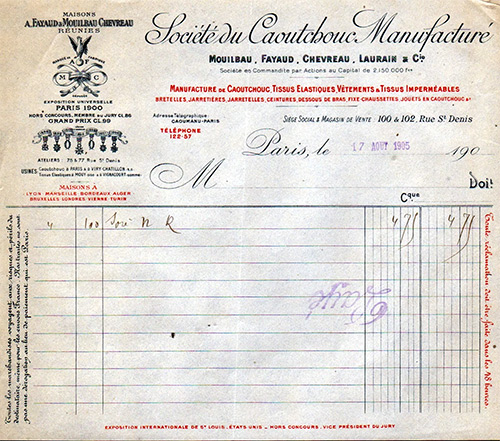 MAISONS
A. FAYAUD & MOUILBAU CHEVREAU
RÉUNIES
F
M C
EXPOSITION UNIVERSELLE
PARIS 1900
HORS CONCOURS, MEMBRE DU JURY CL.86
GRAND PRIX CL.99
ATELIERS : 75 & 77 Rue St Denis
USINES
Caoutchouc à PARIS & à VIRY-CHATILLON
Tissus Elastiques à MOUY & à VIGNACOURT
MAISONS A
LYON MARSEILLE BORDEAUX ALGER
BRUXELLES LONDRES VIENNE TUNIS
Société du Caoutchouc Manufacturé
MOUILBAU, FAYAUD, CHEVREAU, LAURAIN & Cie
Société en Commandite par Actions au Capital de 2,150,000 frs
MANUFACTURE DE CAOUTCHOUC, TISSUS ELASTIQUES, VÊTEMENTS & TISSUS IMPERMÉABLES
BRETELLES, JARRETIÈRES, JARRETELLES, CEINTURES, DESSOUS DE BRAS, FIXE-CHAUSSETTES, JOUETS EN CAOUTCHOUC &ca
Adresse Télégraphique
CAOUMANU-PARIS
TÉLÉPHONE
122-57
SIÈGE SOCIAL & MAGASIN DE VENTE 100 & 102, RUE ST DENIS
Paris, le 17 AOUT 1905 190
M
Doit
Cque
4 100 N R 4 75 4 75
Toutes les marchandises voyagent aux risques & périls du
destinataire, même pour les envois franco. Nos traites ne sont
pas une dérogation au lieu de paiement qui est Paris.
Toute réclamation doit être faite dans les 48 heures.
EXPOSITION INTERNATIONALE DE ST LOUIS, ÉTATS-UNIS - HORS CONCOURS, VICE PRÉSIDENT DU JURY